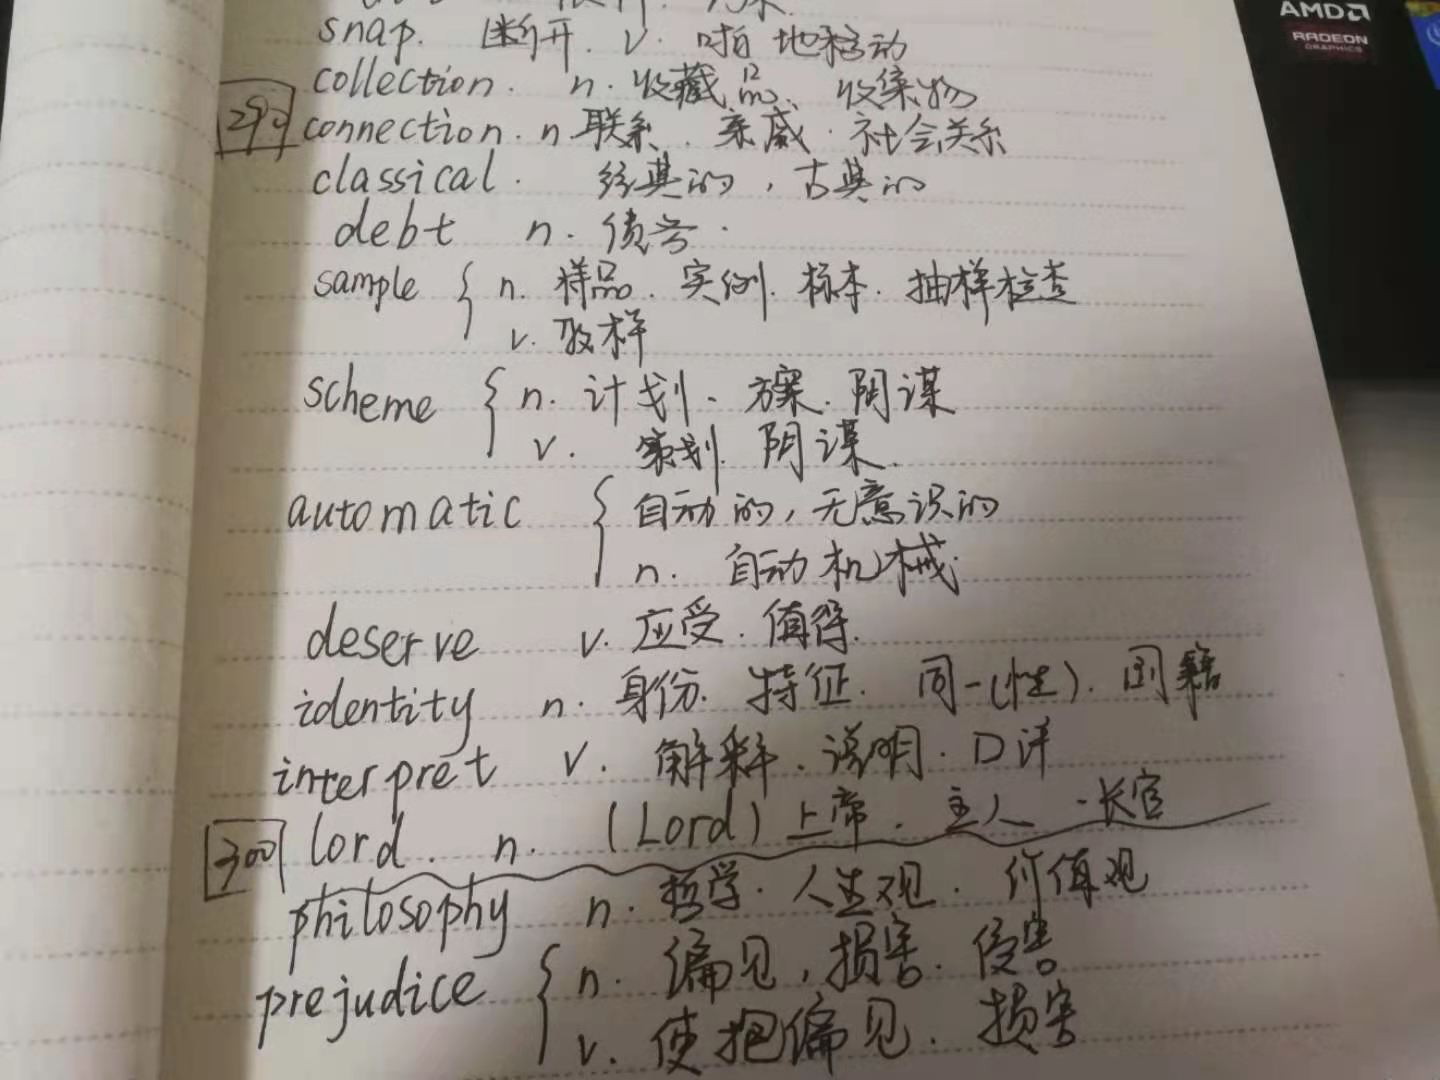 snap. 断开. v. 啪地移动
collection. n. 收藏品、收集物
290 connection. n 联系. 亲戚. 社会关系
classical. 经典的, 古典的
debt n. 债务.
sample { n. 样品. 实例. 标本. 抽样检查
v. 取样
scheme { n. 计划、方案. 阴谋
v. 策划. 阴谋.
automatic { 自动的, 无意识的
n. 自动机械.
deserve v. 应受. 值得.
identity n. 身份. 特征. 同一(性). 国籍
interpret v. 解释、说明. 口译
300 lord. n. (Lord) 上帝. 主人. 长官
philosophy n. 哲学. 人生观. 价值观
prejudice { n. 偏见, 损害. 侵害
v. 使抱偏见. 损害
AMD
RADEON
GRAPHICS